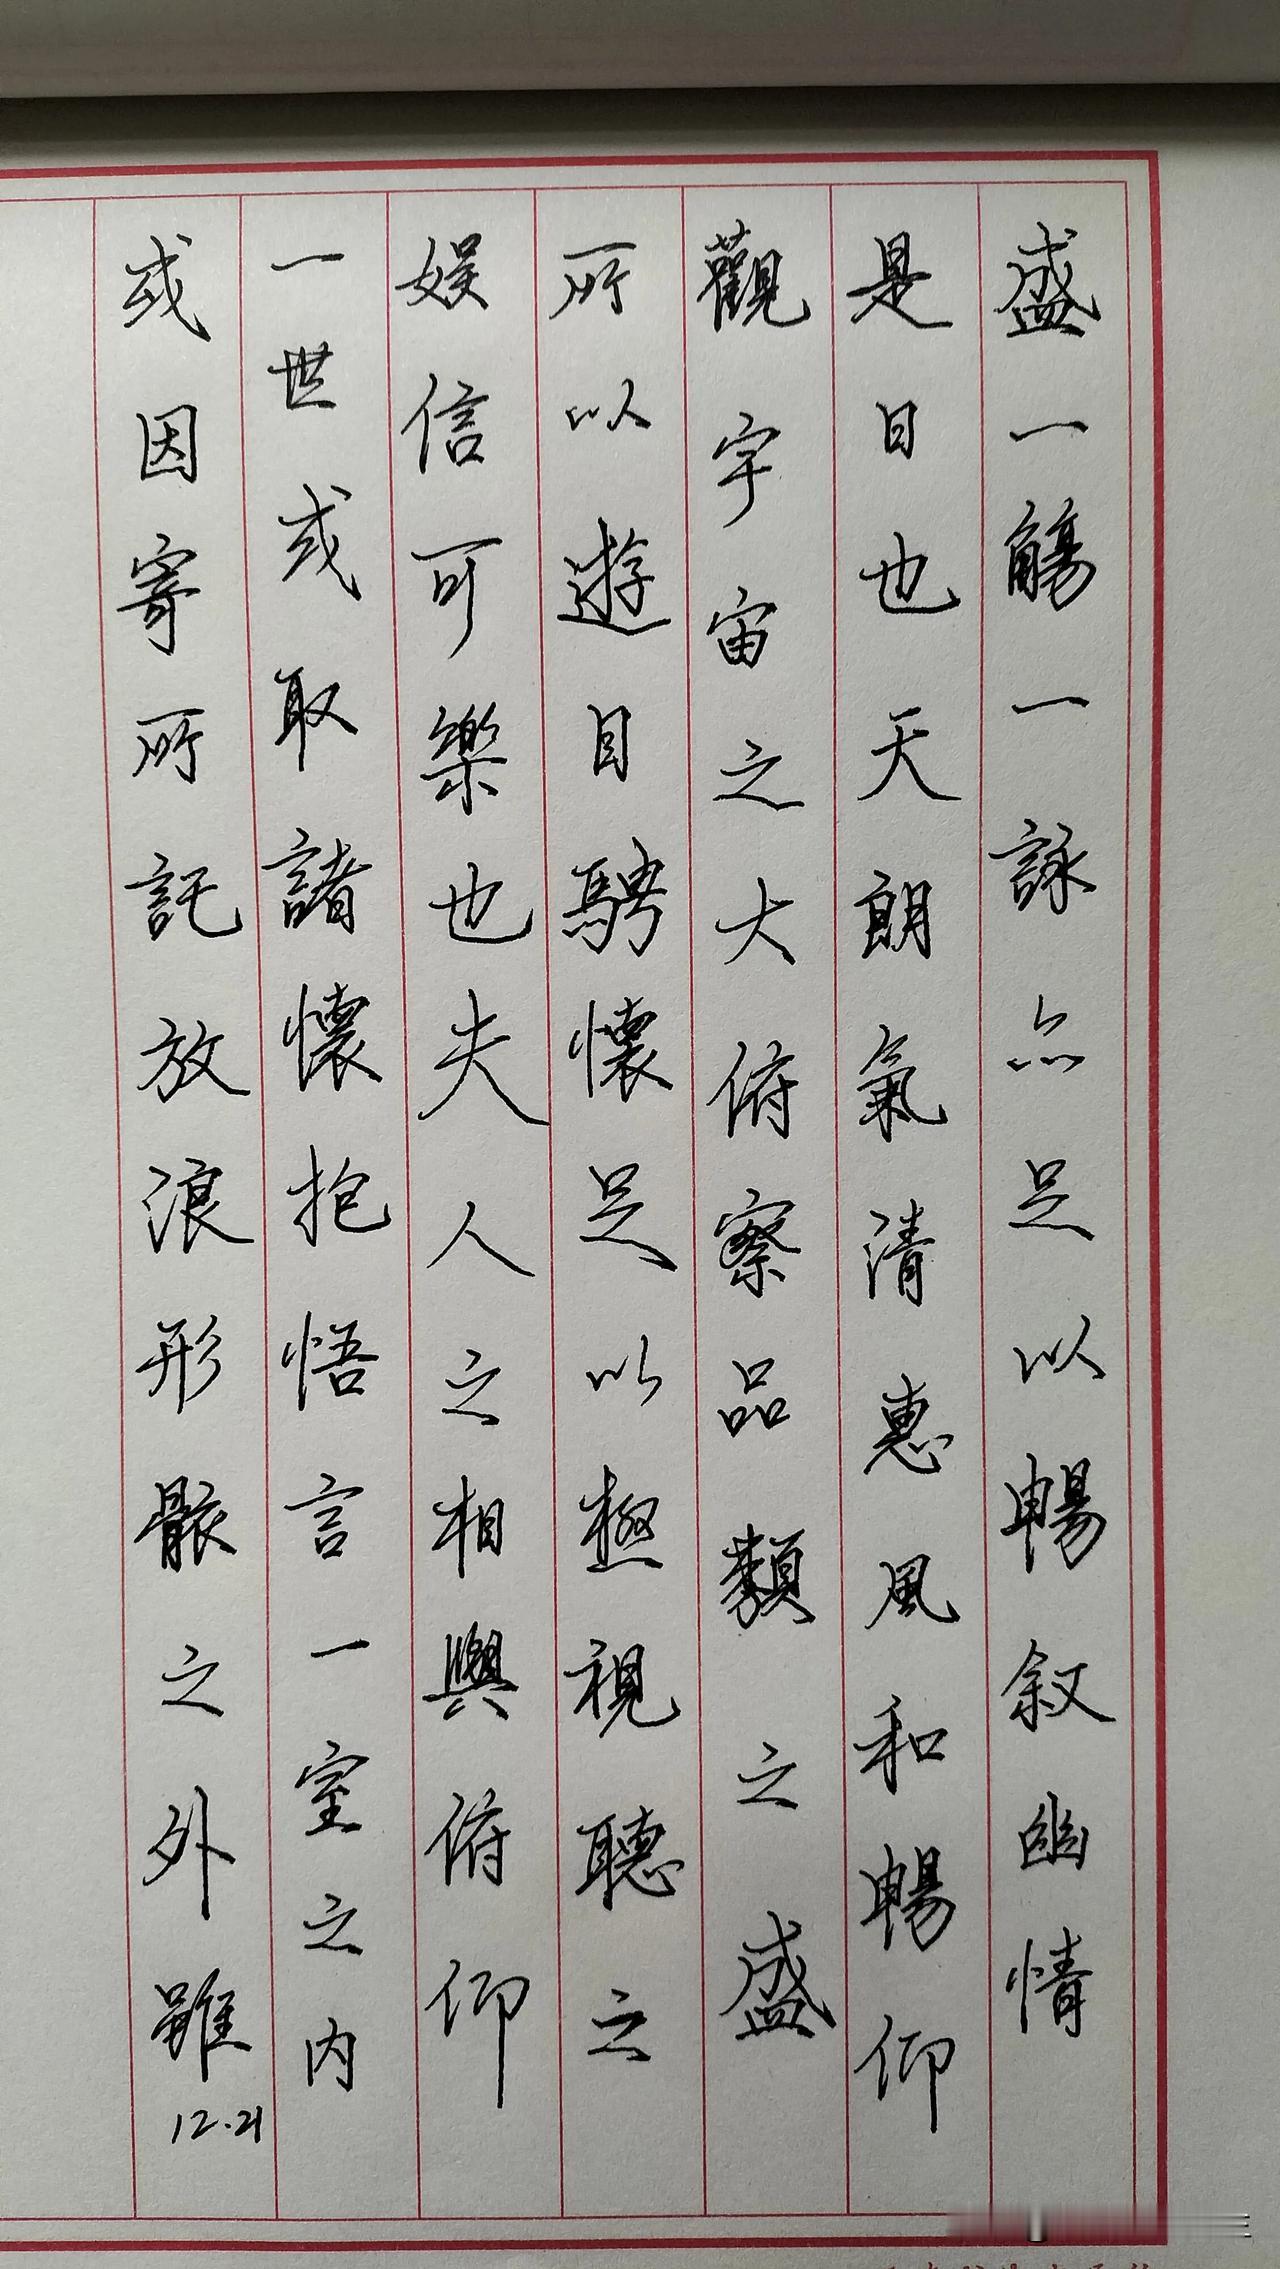 盛一觴一詠亦足以暢叙幽情
是日也天朗氣清惠風和暢仰
觀宇宙之大俯察品類之盛
所以遊目騁懷足以極視聽之
娱信可樂也夫人之相與俯仰
一世或取諸懷抱悟言一室之内
或因寄所託放浪形骸之外雖
12.21